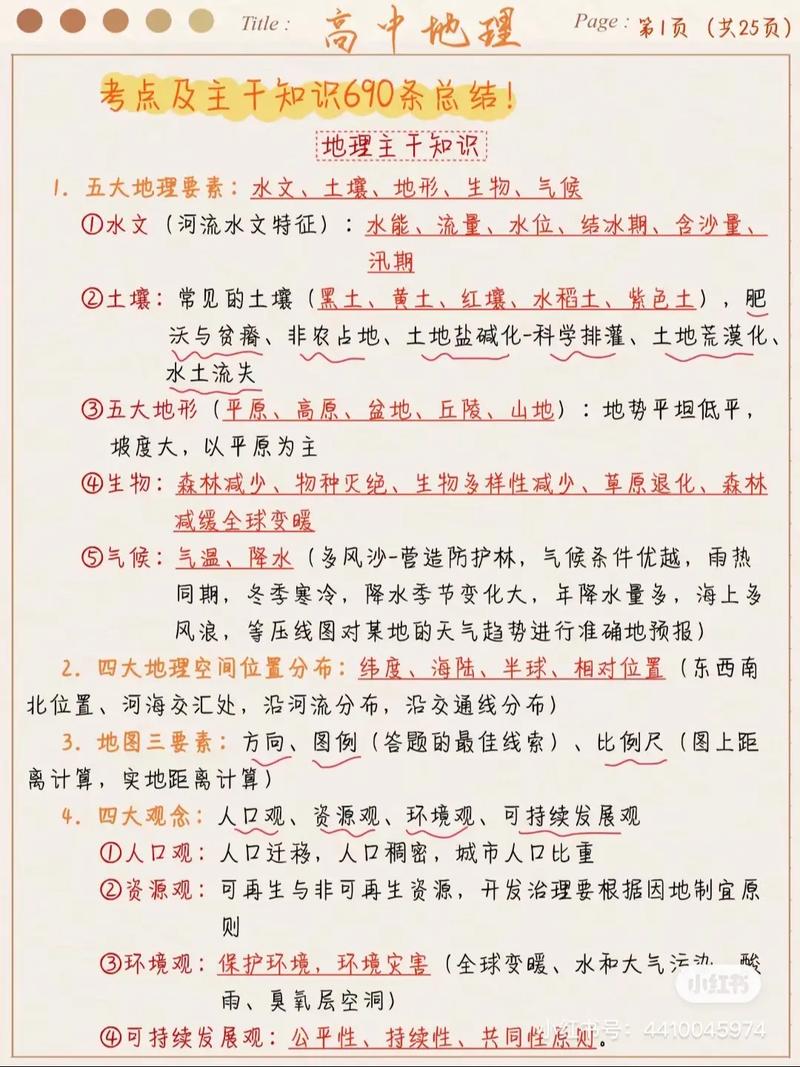 Title： 高中地理 Page： 第1页（共25页）
考点及主干知识690条总结！
地理主干知识
1. 五大地理要素：水文、土壤、地形、生物、气候
①水文（河流水文特征）：水能、流量、水位、结冰期、含沙量、
汛期
②土壤：常见的土壤（黑土、黄土、红壤、水稻土、紫色土），肥
沃与贫瘠、非农占地、土地盐碱化-科学排灌、土地荒漠化、
水土流失
③五大地形（平原、高原、盆地、丘陵、山地）：地势平坦低平，
坡度大，以平原为主
④生物：森林减少、物种灭绝、生物多样性减少、草原退化、森林
减缓全球变暖
⑤气候：气温、降水（多风沙-营造防护林，气候条件优越，雨热
同期，冬季寒冷，降水季节变化大，年降水量多，海上多
风浪，等压线图对某地的天气趋势进行准确地预报）
2. 四大地理空间位置分布：纬度、海陆、半球、相对位置（东西南
北位置、河海交汇处，沿河流分布，沿交通线分布）
3. 地图三要素：方向、图例（答题的最佳线索）、比例尺（图上距
离计算，实地距离计算）
4. 四大观念：人口观、资源观、环境观、可持续发展观
①人口观：人口迁移，人口稠密，城市人口比重
②资源观：可再生与非可再生资源，开发治理要根据因地制宜原
则
③环境观：保护环境，环境灾害（全球变暖、水和大气污染、酸
雨、臭氧层空洞）
小红书
④可持续发展观：公平性、持续性、共同性原则。
小红书号：4410045974